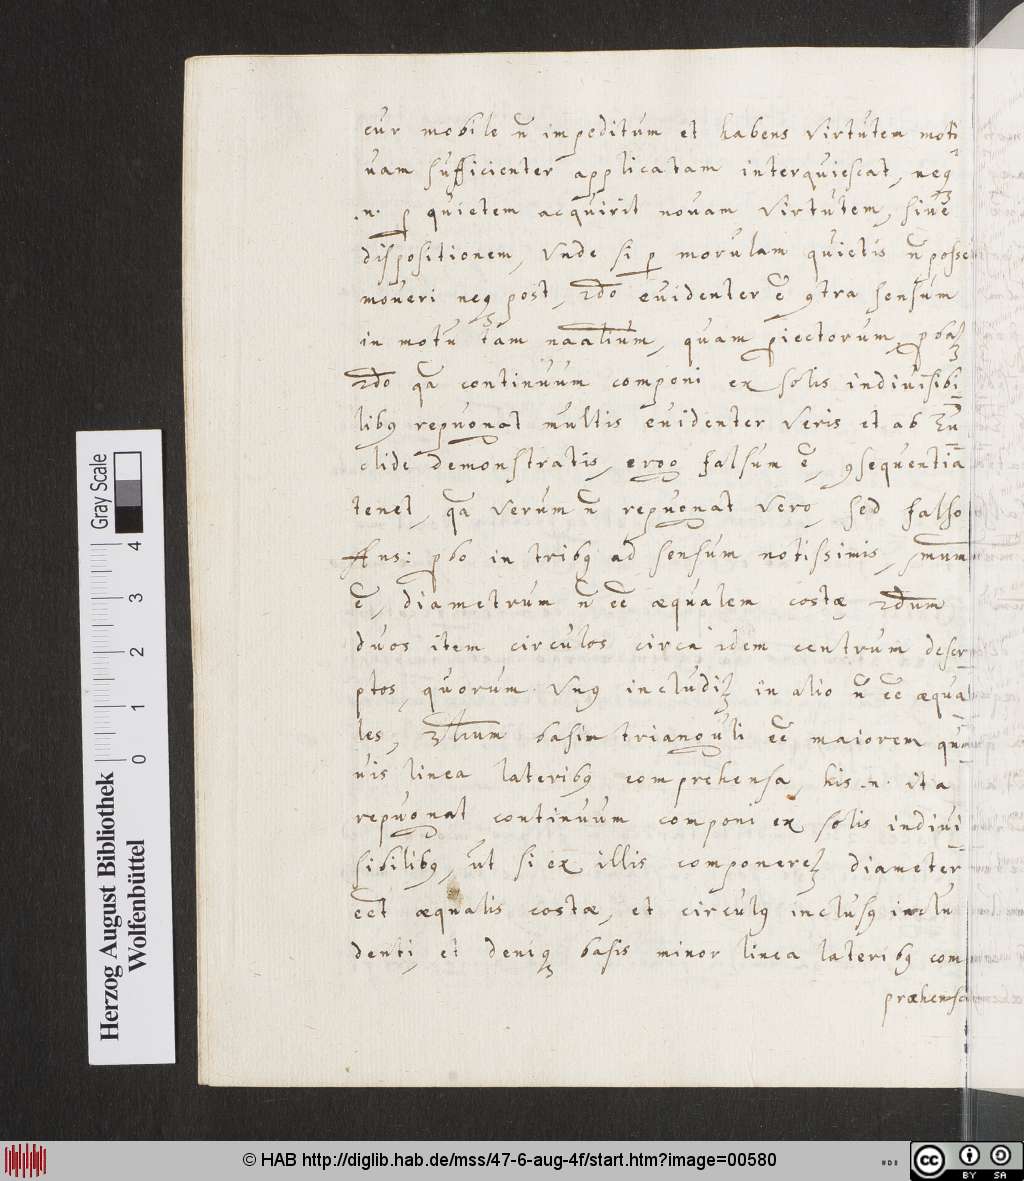 cur mobile n̄ impeditum et habens virtutem moti
uam sufficienter applicatam interquiescat, neqꝫ
.n. ꝑ quietem acquirit nouam virtutem, siue
dispositionem, vnde si ꝑ morulam quietis n̄ posset
moueri neqꝫ post, 2do euidenter ē ꝯtra sensum
in motu tam naalium, quam ꝓiectorum, ꝓbaꝫ
2do qa continuum componi ex solis indiuisibi
libꝰ repugnat multis euidenter veris et ab Eu
clide demonstratis, ergo falsum ē, ꝯsequentia
tenet, qa verum n̄ repugnat vero, sed falso
Ans: ꝓbo in tribꝰ ad sensum notissimis, pmum
ē, diametrum n̄ ēē æqualem costæ 2dum
duos item circulos circa idem centrum descr
ptos, quorum vnꝰ includiꝫ in alio n̄ ēē æqua
les, 3tium basim trianguli ēē maiorem qua
uis linea lateribꝰ comprehensa, his .n. ita
repugnat continuum componi ex solis indiui
sibilibꝰ, ut si ex illis componereꝫ diameter
eēt æqualis costæ, et circulꝰ inclusꝰ inclu
denti, et deniqꝫ basis minor linea lateribꝰ com
præhensa
Gray Scale
0 1 2 3 4
Herzog August Bibliothek
Wolfenbüttel
© HAB http://diglib.hab.de/mss/47-6-aug-4f/start.htm?image=00580
cc BY SA